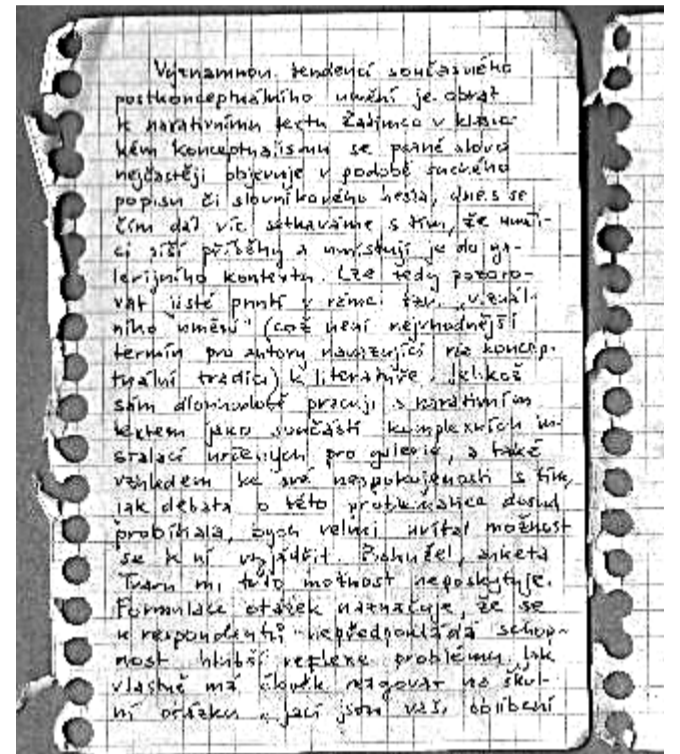 Významnou tendencí současného
postkonceptuálního umění je obrat
k narativnímu textu. Zatímco v klasic-
kém konceptualismu se psané slovo
nejčastěji objevuje v podobě suchého
popisu či slovníkového hesla, dnes se
čím dál víc setkáváme s tím, že uměl-
ci píší příběhy a umisťují je do ga-
lerijního kontextu. Lze tedy pozoro-
vat jisté pnutí v rámci tzv. „vizuál-
ního umění" (což není nejvhodnější
termín pro autory navazující na koncep-
tuální tradici) k literatuře. Jelikož
sám dlouhodobě pracuji s narativním
textem jako součástí komplexních in-
stalací určených pro galerie, a také
vzhledem ke své nespokojenosti s tím,
jak debata o této problematice dosud
probíhala, bych velmi uvítal možnost
se k ní vyjádřit. Bohužel, anketa
Tvaru mi tuto možnost neposkytuje.
Formulace otázek naznačuje, že se
u respondentů nepředpokládá schop-
nost hlubší reflexe problému. Jak
vlastně má člověk reagovat na škol-
ní otázku „jací jsou vaši oblíbení